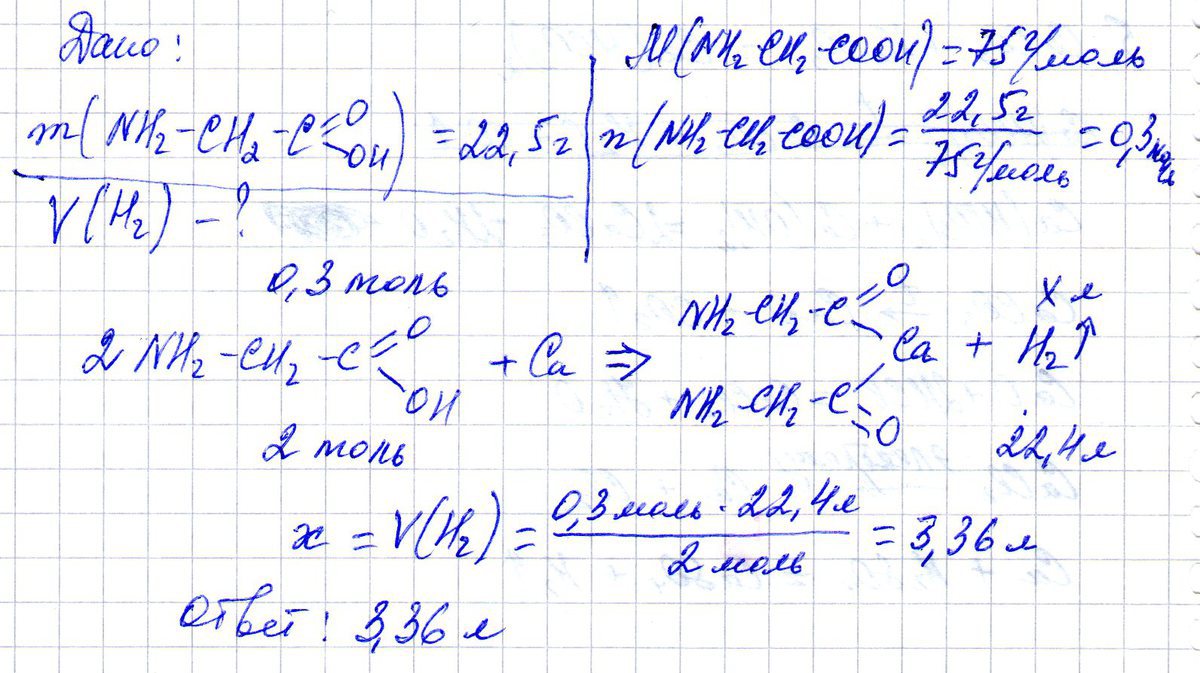 Дано:
m(NH₂-CH₂-C=O OH) = 22,5г
V(H₂) - ?
M(NH₂-CH₂-COOH) = 75 г/моль
n(NH₂-CH₂-COOH) = 22,5г / 75 г/моль = 0,3 моль
0,3 моль
X л
2 NH₂-CH₂-C=O OH + Ca ⇒ NH₂-CH₂-C=O Ca NH₂-CH₂-C=O + H₂↑
2 моль
22,4л
x = V(H₂) = 0,3 моль · 22,4л / 2 моль = 3,36 л
Ответ: 3,36 л